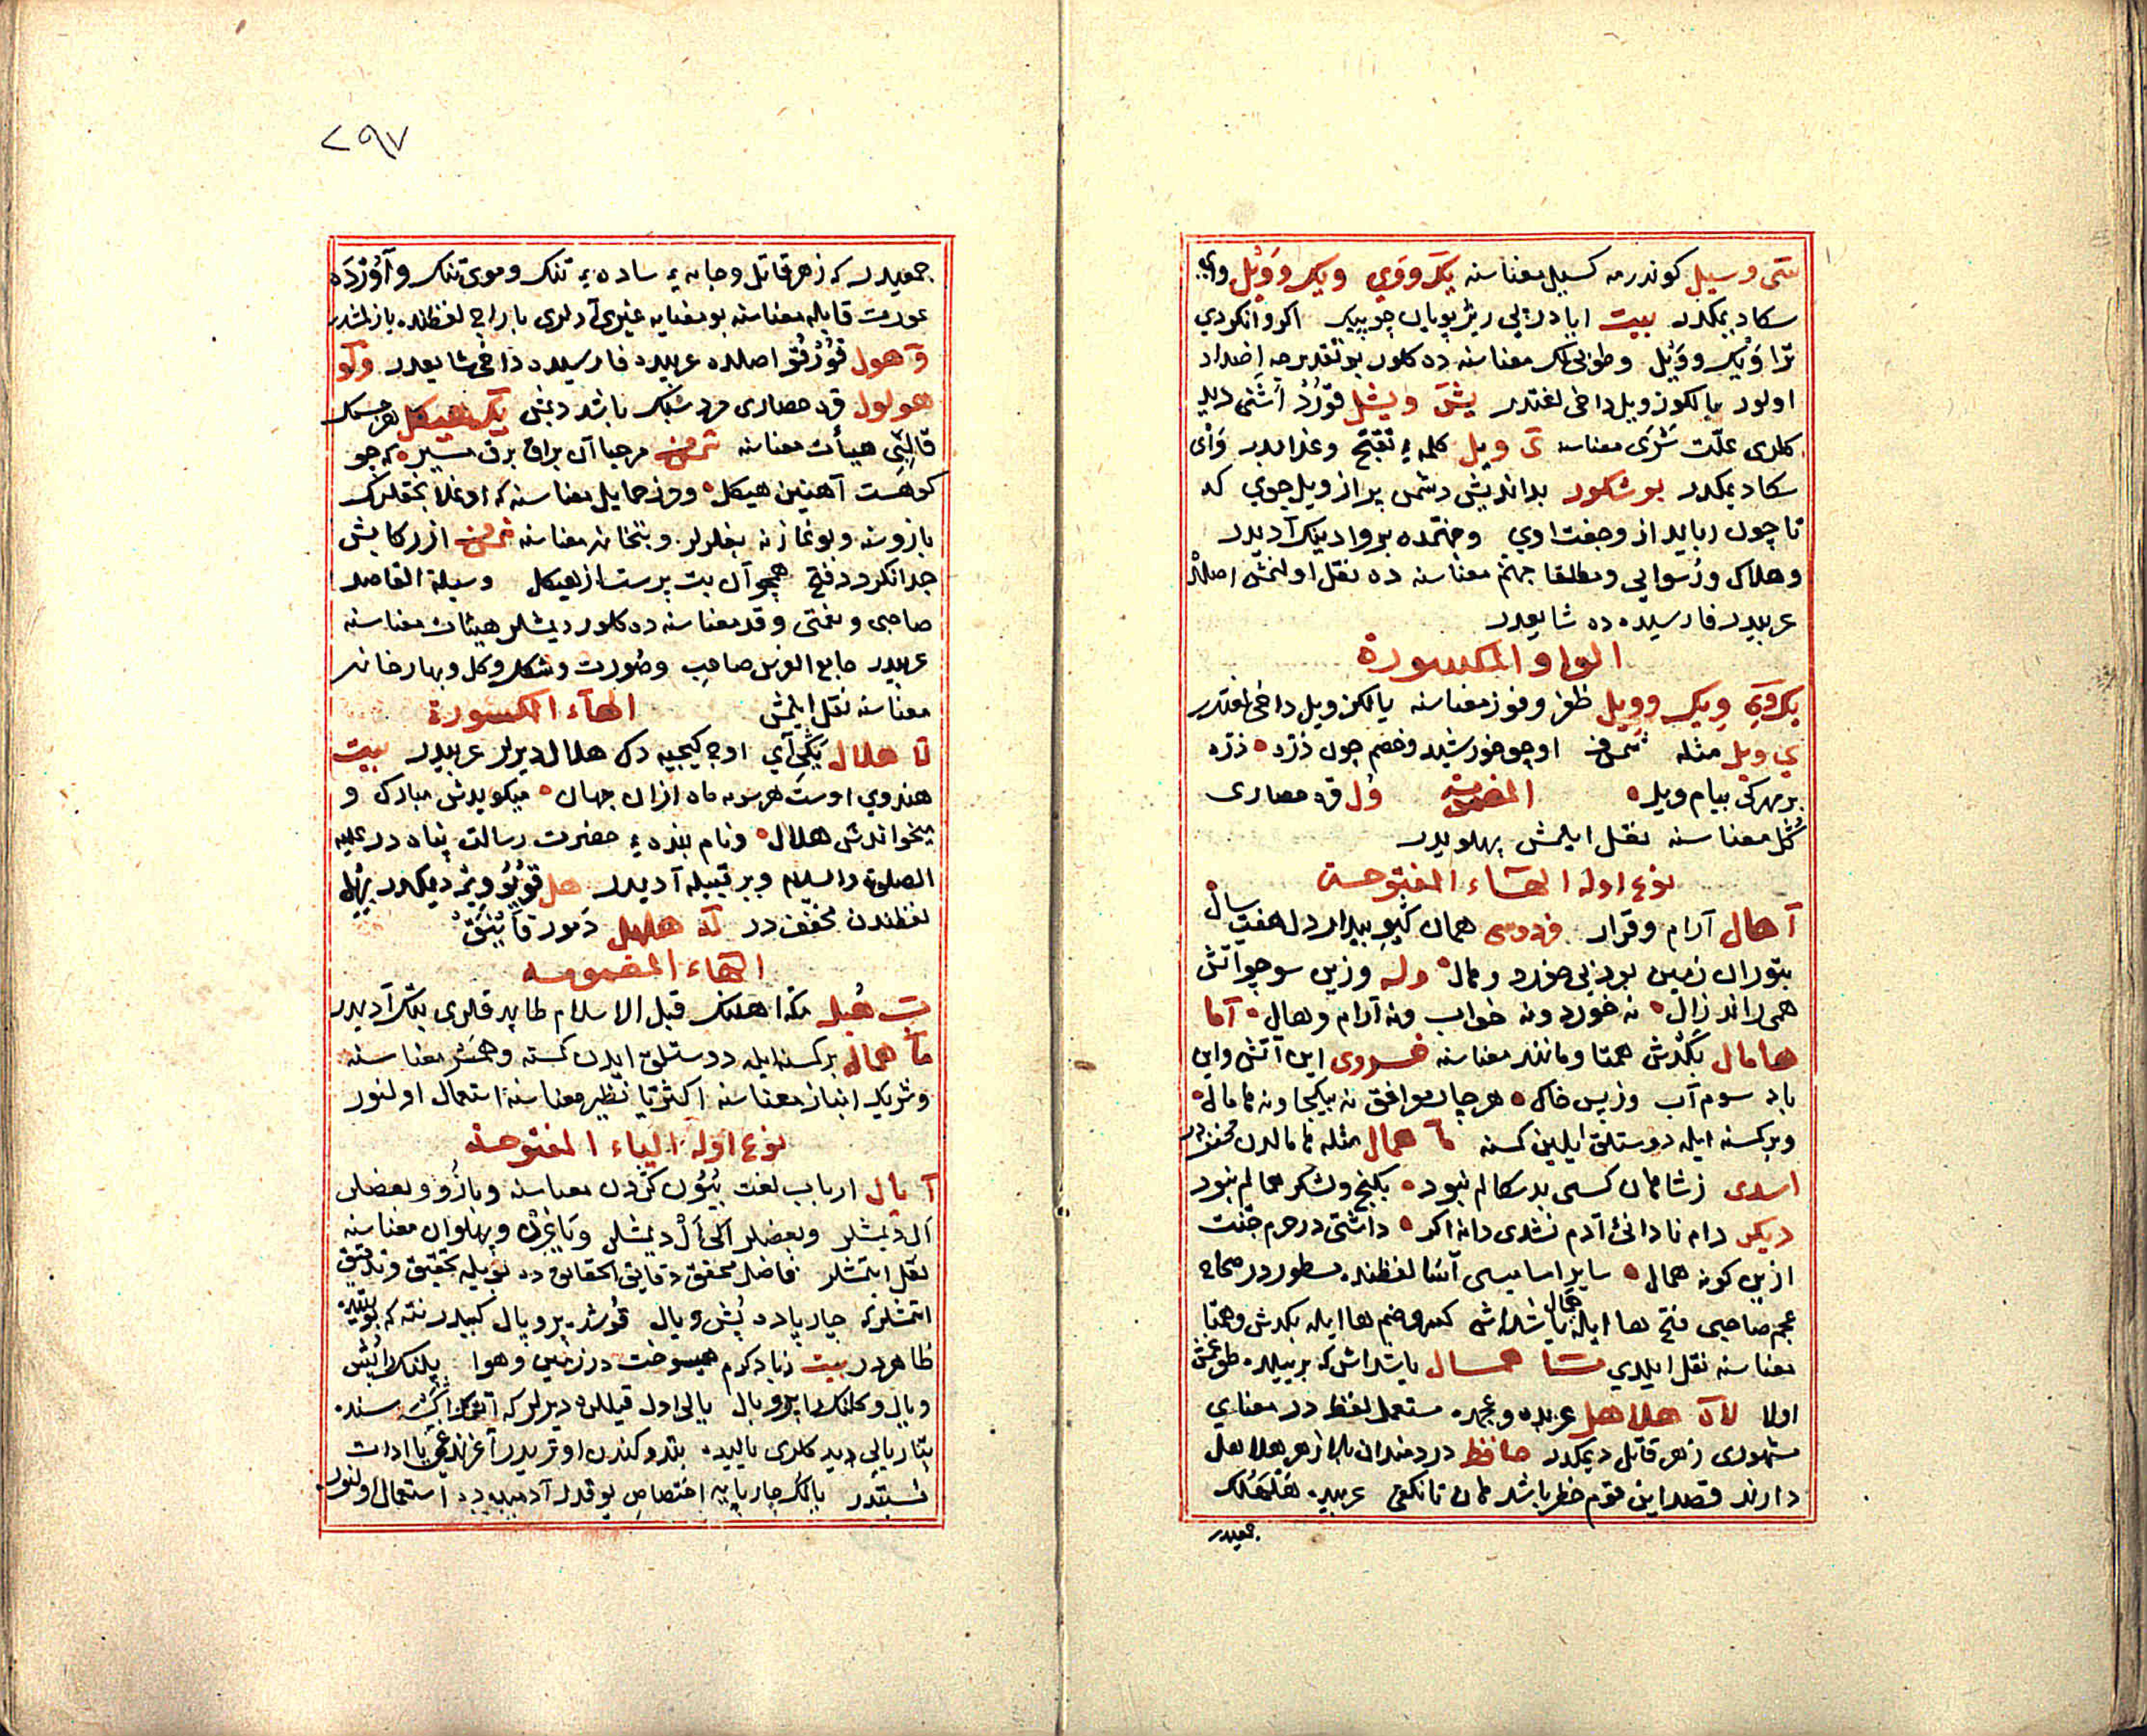 سَتى وسيل كوندرمه كسيل معناسنه يَك ووَي ويك ووَيْل واي
سكا ديمكدر بيت ايا درپى ريز پويان چو پيك اكر وانكردي
ترا وَيْك ووَيْل وطوبى لك معناسنه ده كلور بو تقديرجه اضداد
اولور يالكوز ويل داخى لغتدر
كلدى علّت شَرى معناسنه ويل كلمهٔ تفتح وعذابدر وَاى
سكا ديمكدر بو شكور بدانديش دشمن پر از ويل جوي كه
تا چون ربايد از وجفت اوي وجهنمده بر واد ينك آديدر
وهلاك ورسوايى ومطلقا جهنم معناسنه ده نقل اولنمش اصلده
عربيدر فارسيده ده شايعدر
الواو المكسورة
يك وي ويك وويل ظفر وفوز معناسنه يالكز ويل داخى لغتدر
ي ويل مثله شمس فخرى او چو خورشيد وخصم چون ذرّه ذرّه
بر مهر كى بيام ويل المضمومه وُل قره حصارى
كُل معناسنه نقل ايلمش پهلويدر
نوع اوله الهاء المفتوحة
آ هال آرام وقرار فردوسى همان كيو بيدار دل هفت سال
بتوران زمين بود بى خورد وهال وله وزين سو چو آتش
همى راند زال نه خورد ونه خواب ونه آرام وهال آما
هامال بكدش همتا ومانند معناسنه خسروى اين آتش واين
باد سوم آب وزپس خاك هر چار موافق نه بيكجا ونه هامال
وبر كسنه ايله دوستلق ايلين كسنه ما همال مثله هامالدن مخففدر
اسدى زشاهان كسى بد سكالم نبود بكنج ولشكر همالم نبود
ديكر دام نادانئ آدم نشدى دانه اكر داشتى در حرم جنّت
ازين كونه همال ساير اساميسى آنتا لفظنده مسطوردر صحاح
عجم صاحبى فتح ها ايله همال باشداش كسر وضم ها ايله بكدش وهمتا
معناسنه نقل ايلدي شا همسال ياشداش كه بر ييلده طوغمش
اولا لآه هلاهل عربده وعجمده مستعمل لفظدر معناي
مشهورى زهر قاتل ديمكدر حافظ دردمندان بلا زهر هلاهل
دارند قصد اين قوم خطر باشد هان تا نكنى عربيده هَلْهَلْك
جمعيدر
٢٩٧
جمعيدر كه زهر قاتل وجامهٔ سادهٔ تنك وموى تنك وآوُزَده
عورت قابله معناسنه بو معنايه غيرى آدلرى باراج لفظنده يازلمشدر
وَ هول قُورْقُو اصلده عربيدر فارسيده داخى شايعدر وَلو
هولول قره حصارى مرد سبك باشد ديمش يك هيكل هر جسمك
قالبى هيأت معناسنه شمس فخرى مرحبا آن براق برق مسير كه چو
كوهست آهنين هيكل وورد حمايل معناسنه كه اوغلانجقلرك
بازوسنه وبوغازنه بغلرلر وبتخانه معناسنه شمس فخرى از ركابش
جدا نكردد فتح همچو آن بت پرست از هيكل وسيلة المقاصد
صاحبى ونعمتى وقد معناسنه ده كلور ديمشلر هيئات معناسنه
عربيدر جامع الفرس صاحب وصورت وشكل وكل وبهارخانه
معناسنه نقل ايلمش الهاء المكسورة
لا هلال يَكى آي اوج كيجيه دك هلال ديرلر عربيدر بيت
هندوي اوست هر سر ماه ازان جهان ميكويدش مبارك و
ميخواندش هلال ونام بندهٔ حضرت رسالت پناه در عليه
الصلوة والسلام وبر قبيله آديدر هل قويُوويْر ديمكدر بهل
لفظندن مخففدر له هليل دَمور قابوق
الهاء المضمومه
بت هُبل مكه اهلنك قبل الاسلام طاپدقلرى بتك آديدر
ما همال بر كسنه ايله دوستلق ايدن كسنه وهمسر معناسنه
وشريك انباز معناسنه اكثريا نظير معناسنه استعمال اولنور
نوع اوله الياء المفتوحة
آ يال ارباب لغت بُيُون كردن معناسنه وبازُو وبعضلر
اَل ديمشلر وبعضلر اَلى اَلْ ديمشلر وياغرن وپهلوان معناسنه
نقل ايتمشلر فاضل محقق دقايق الحقايق ده بويله تحقيق وتدقيق
ايتمشلر كه چارپاده پُش ويال قوشده پر وبال كبيدر نته كه بو بيتده
ظاهردر بيت زباد كرم هميسوخت در زمين وهوا پلنك را پُش
ويال وكلنك را پر وبال يالى اول قيللره ديرلر كه آتك اكسه سنده
بتر يالى ديدكلرى ياليده بتدوكندن اوتريدر آخرنده كى يا ادات
نسبتدر يالك چارپايه اختصاصى يوقدر آدميده ده استعمال اولنور